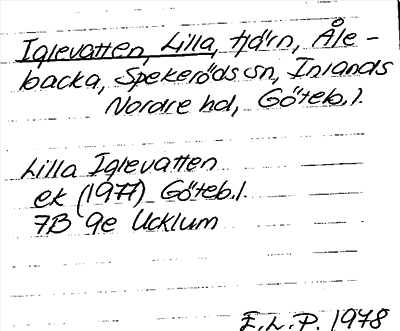 Iglevatten, Lilla, tjärn, Åle-
backa, Spekeröds sn, Inlands
Nordre hd, Göteb.l.
Lilla Iglevatten
ek (1977) Göteb.l.
7B 9e Ucklum
E.L.P. 1978